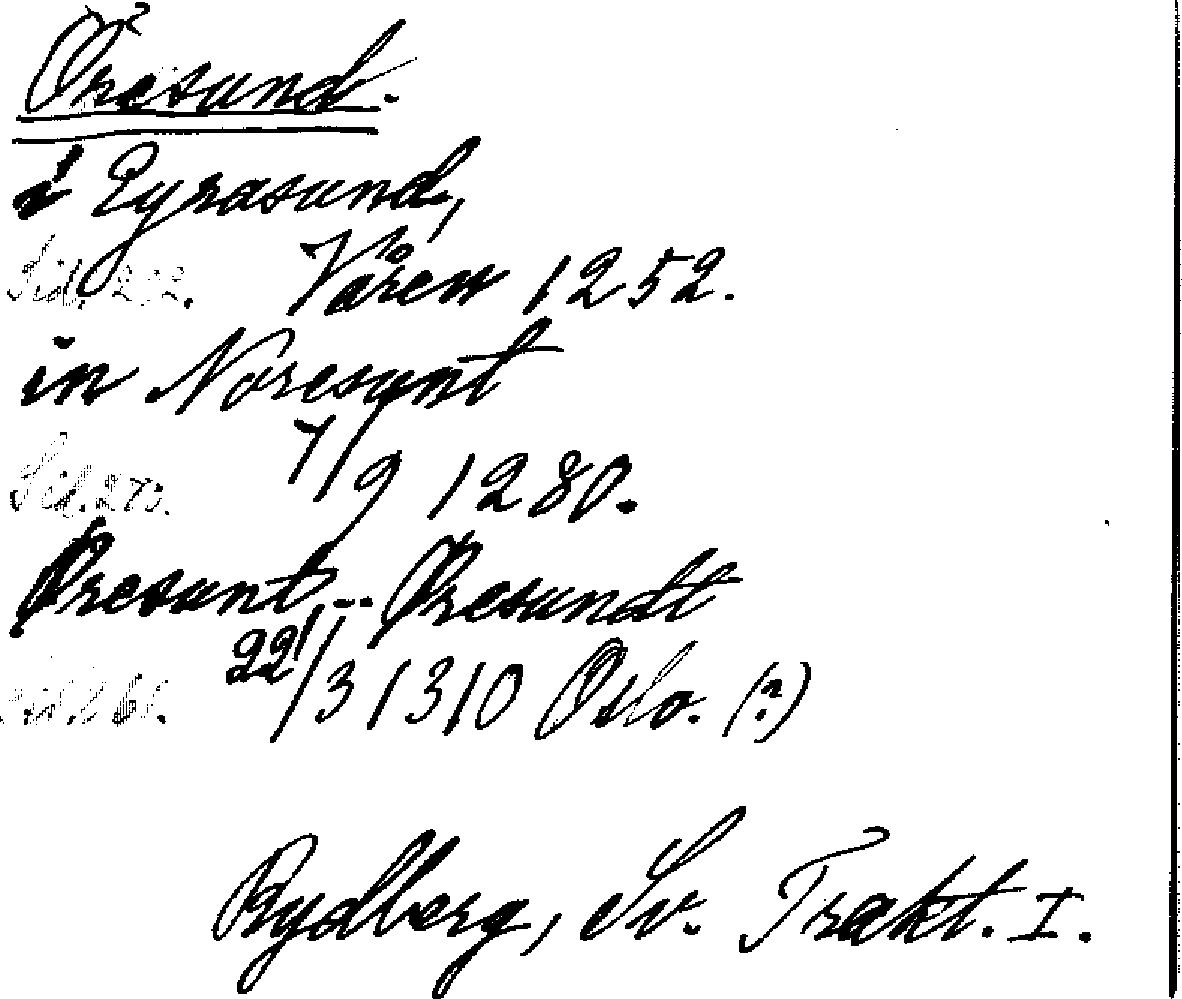 Öresund.
i Eyrasund,
Sid. 222. Våren 1252.
in Noresunt
Sid. 270. 7/9 1280.
Øresunt, -- Øresundt
22/3 1310 Oslo. (?)
Rydberg, Sv. Trakt. I.